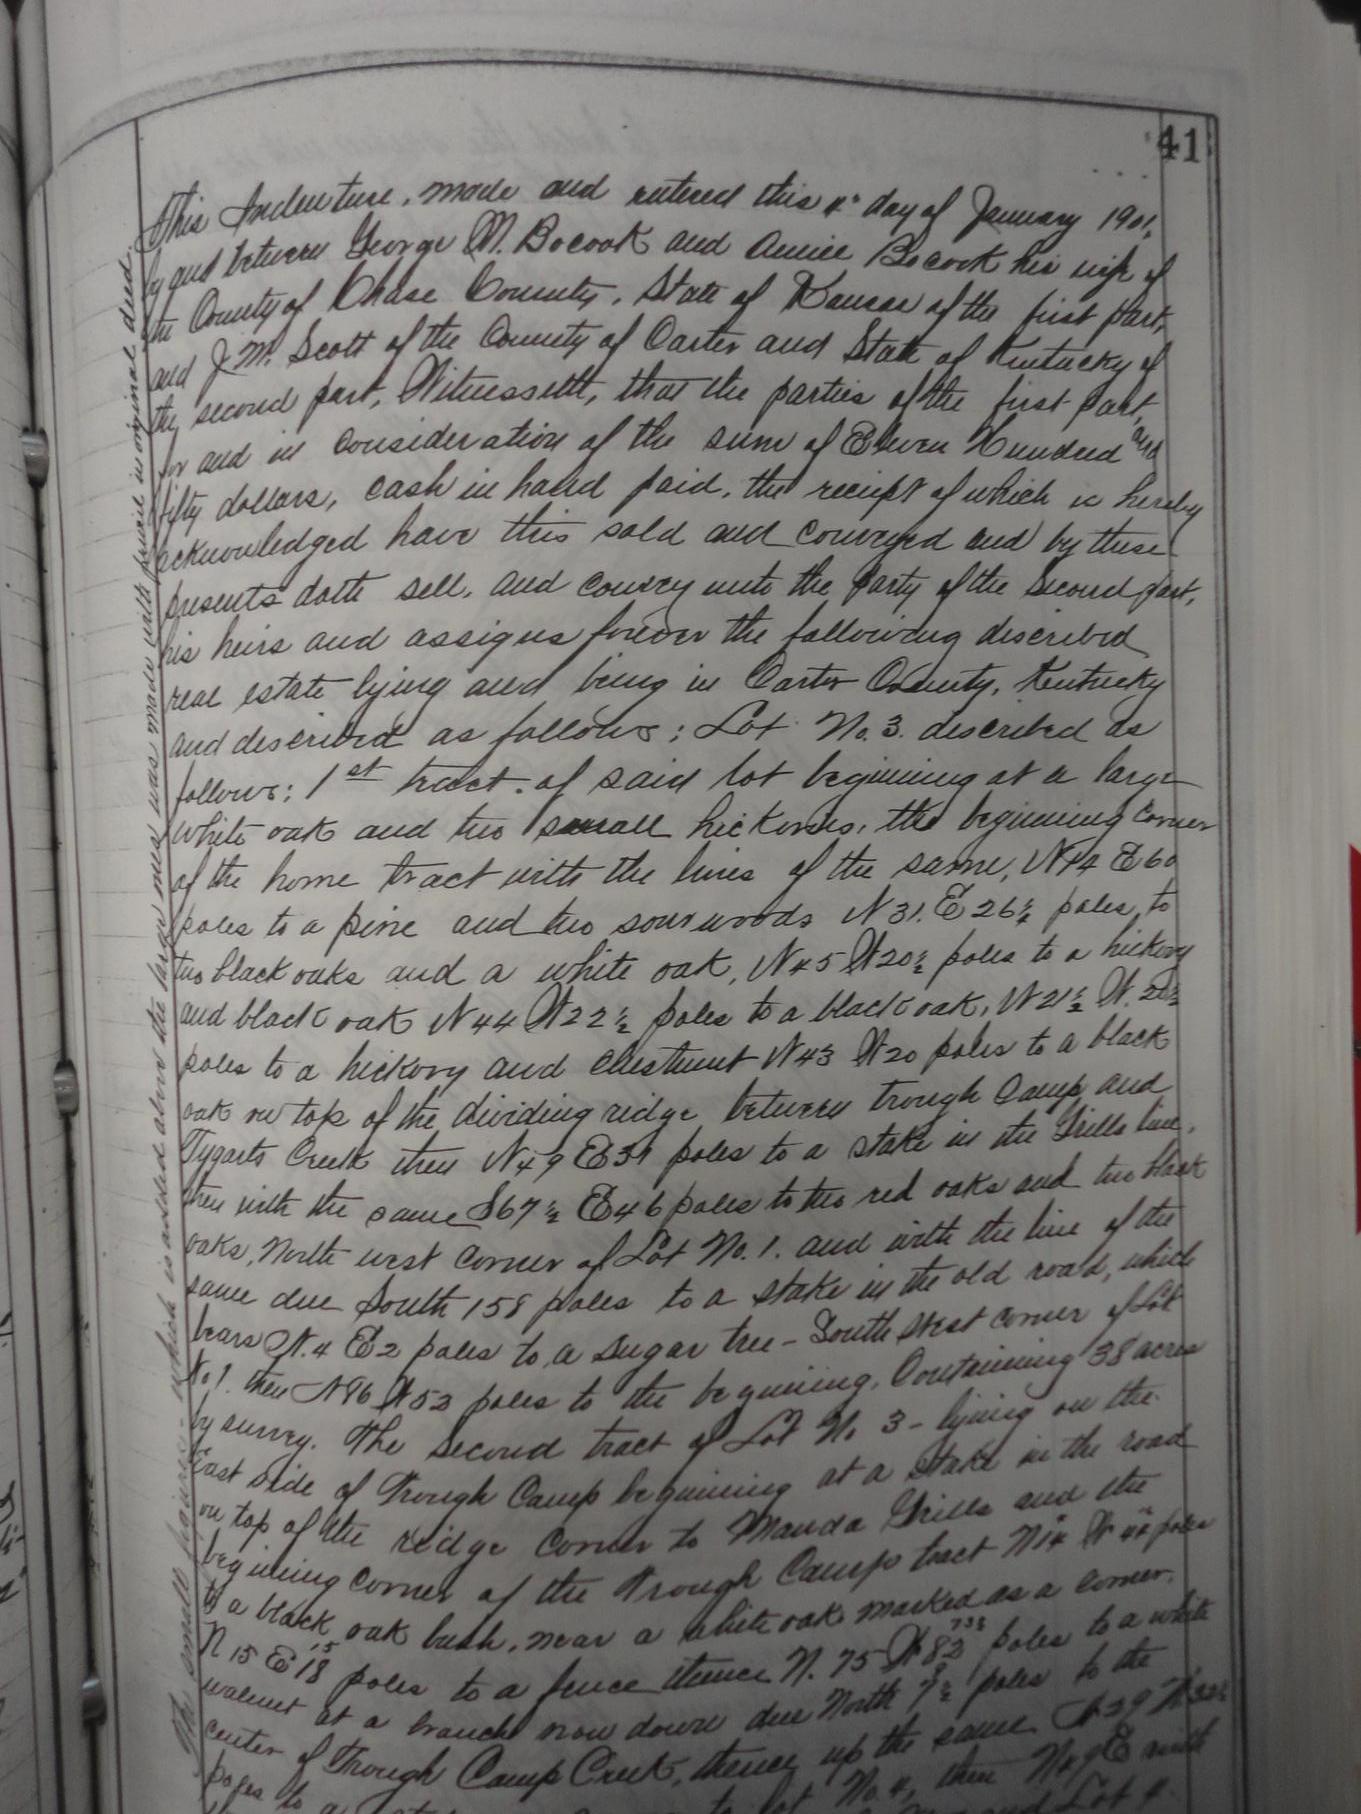 41
This Indenture, made and entered this 4" day of January 1901,
by and between George M. Bocook and Annie Bocook his wife of
the County of Chase County, State of Kansas of the first part,
and J.M. Scott of the County of Carter and State of Kentucky of
the second part, Witnesseth, that the parties of the first part,
for and in consideration of the sum of Eleven Hundred and
fifty dollars, cash in hand paid, the reciept of which is hereby
acknowledged have this sold and conveyed and by these
presents doth sell, and convey unto the party of the second part,
his heirs and assigns forever the following discribed
real estate lying and being in Carter County, Kentucky
and discribed as follows; Lot No. 3. discribed as
follows: 1st tract. of said lot beginning at a large
white oak and two small hickories, the beginning corner
of the home tract with the lines of the same, N 14 E 60
poles to a pine and two sourwoods N 31. E 26½ poles, to
two black oaks and a white oak, N 45 W 20½ poles to a hickory
and black oak N 44 W 22½ poles to a black oak, N 21½ W.
poles to a hickory and chestnut N 43 W 20 poles to a black
oak on top of the dividing ridge between trough Camp and
Tygarts Creek then N 49 E 31 poles to a stake in the Grills line,
then with the same S 67½ E 46 poles to two red oaks and two black
oaks, North west corner of Lot No. 1. and with the line of the
same due South 158 poles to a stake in the old road, which
bears N. 4 E 2 poles to a sugar tree - South West corner of Lot
No 1. then N 86 W 52 poles to the beginning, Containing 38 acres
by survey. The second tract of Lot No 3 - lying on the
East side of Trough Camp beginning at a stake in the road
on top of the ridge corner to Manda Grills and the
beginning corner of the Trough Camp tract N 14 W poles
to a black oak bush, near a white oak marked as a corner.
N 15 E 18 15 poles to a fence thence N. 75 W 82 73½ poles to a white
walnut at a branch now down due North 7½ poles to the
center of Trough Camp Creek, thence up the same
poles to a No. 4, then E with
The small figures which is added above the large ones was made with pencil in original deed.